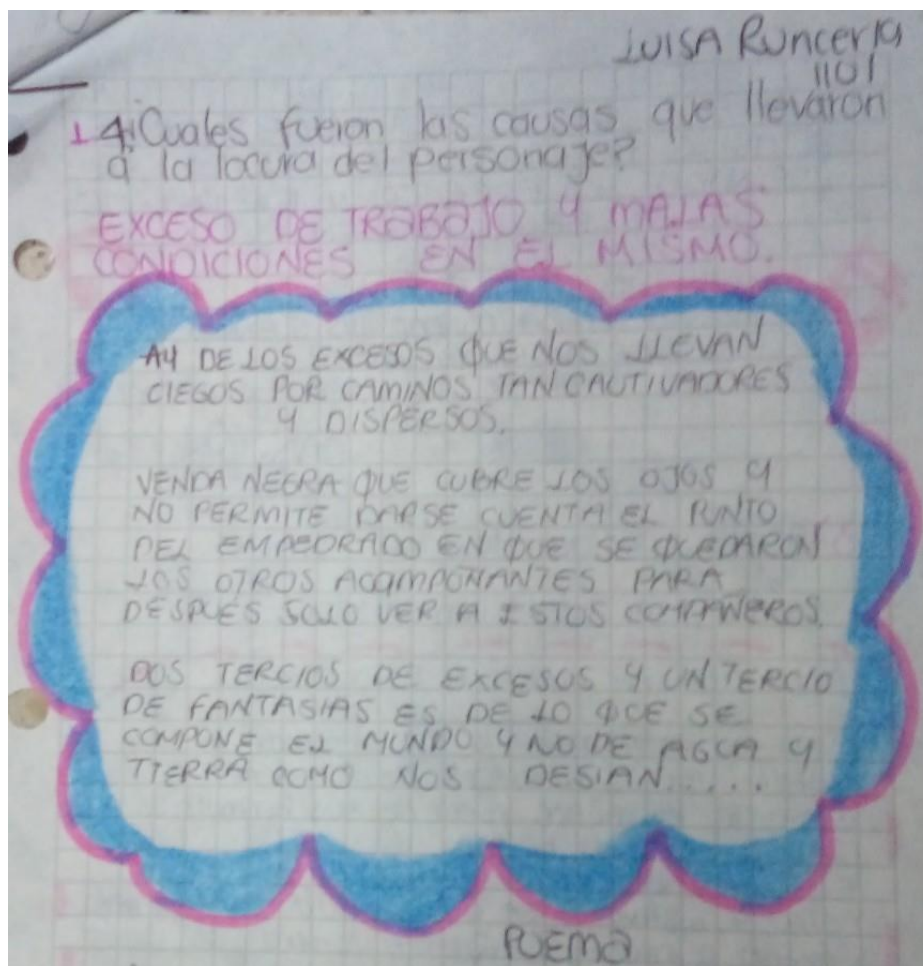 LUISA RUNCERIA
1101
1 4¿Cuales fueron las causas que llevaron
a la locura del personaje?
EXCESO DE TRABAJO Y MALAS
CONDICIONES EN EL MISMO.
AY DE LOS EXCESOS QUE NOS LLEVAN
CIEGOS POR CAMINOS TAN CAUTIVADORES
Y DISPERSOS.
VENDA NEGRA QUE CUBRE LOS OJOS Y
NO PERMITE DARSE CUENTA EL PUNTO
DEL EMPEDRADO EN QUE SE QUEDARON
LOS OTROS ACOMPONANTES PARA
DESPUES SOLO VER A ESTOS COMPAÑEROS.
DOS TERCIOS DE EXCESOS Y UN TERCIO
DE FANTASIAS ES DE LO QUE SE
COMPONE EL MUNDO Y NO DE AGUA Y
TIERRA COMO NOS DESIAN.....
POEMA